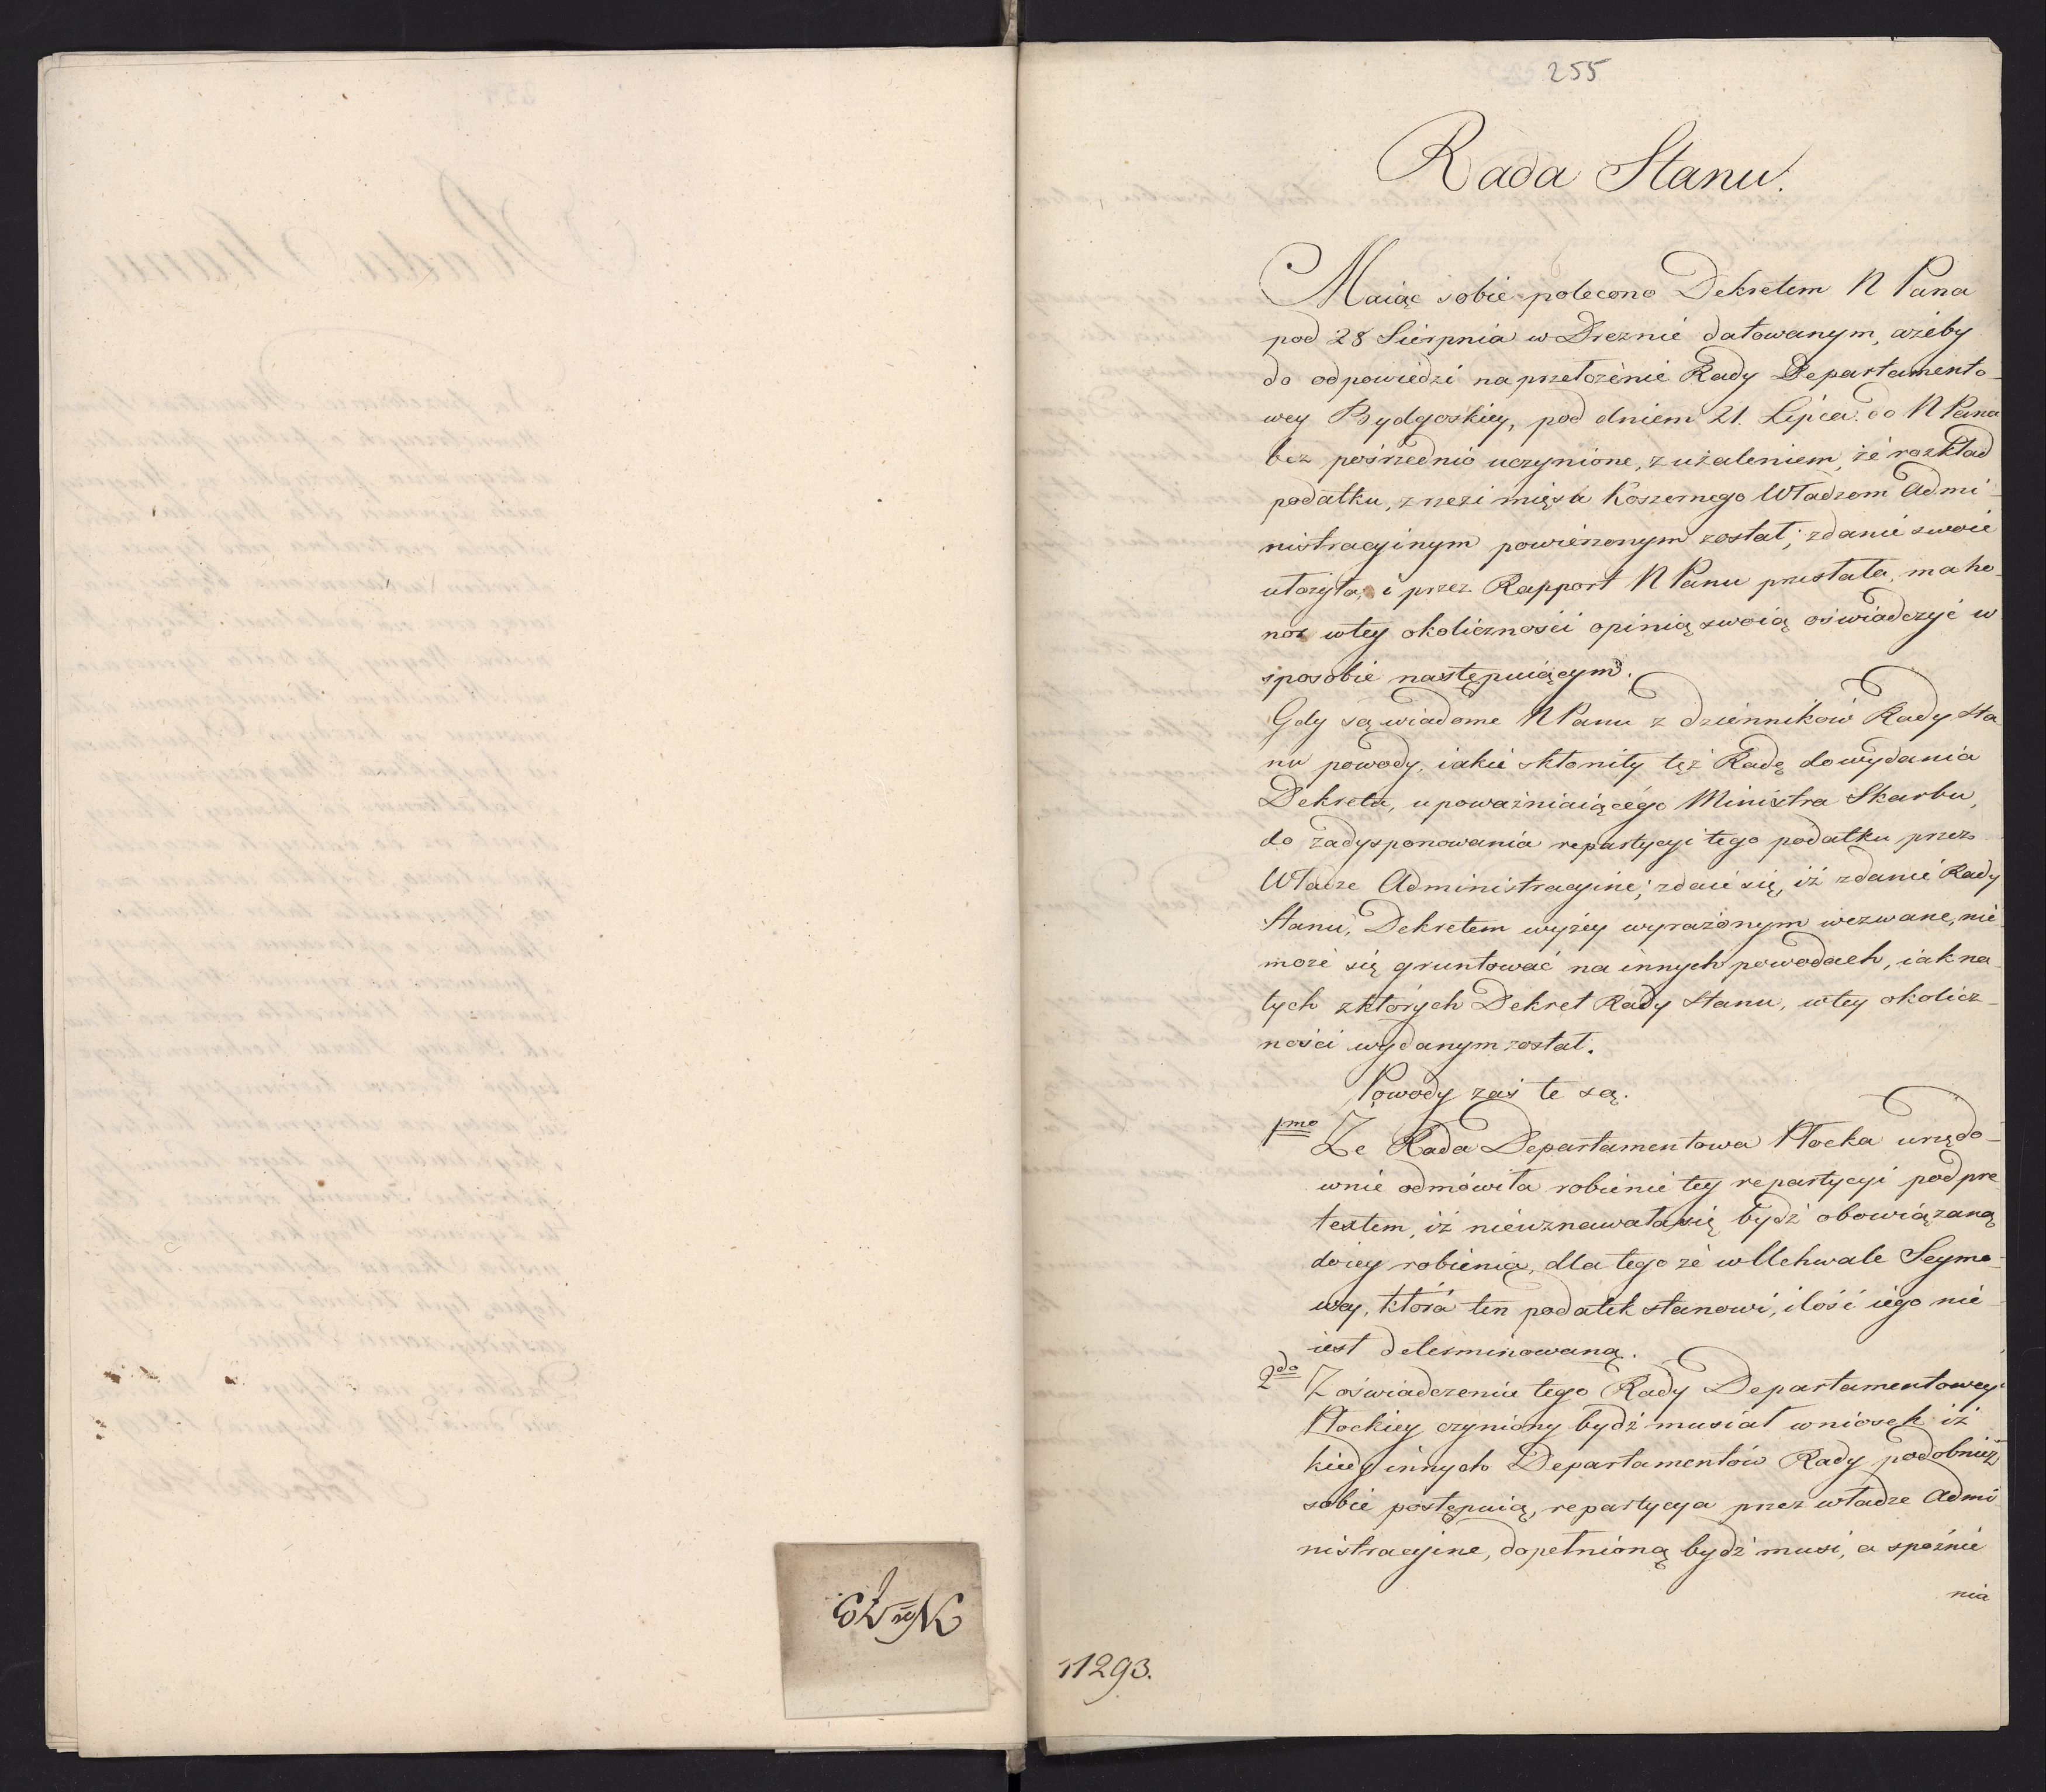 255
Rada Stanu.
Maiąc sobie polecono Dekretem N Pana
pod 28 Sierpnia w Dreznie datowanym, ażeby
do odpowiedzi na przełożenie Rady Departamento-
wey Bydgoskiey, pod dniem 21. Lipca do N Pana
bez pośrzednio uczynione, z użaleniem, że rozkład
podatku, z rzezi mięsa Koszernego Władzom Admi-
nistracyinym powierzonym został; zdanie swoie
ułożyła, i przez Rapport N Panu przesłała, ma ho-
nor wtey okoliczności opinią swoią oświadczyć w
sposobie następuiącym.
Gdy są wiadome N Panu z dzienników Rady Sta
nu powody, iakie skłoniły tęż Radę do wydania
Dekretu, upoważniaiącego Ministra Skarbu,
do zadysponowania repartycyi tego podatku przez
Władze Administracyine; zdaie się, iż zdanie Rady
Stanu, Dekretem wyżey wyrażonym wezwane, nie
może się gruntować na innych powodach, iak na
tych z których Dekret Rady Stanu, wtey okolicz-
ności wydanym został.
Powody zaś te są.
1mo Że Rada Departamentowa Płocka urzędo-
wnie odmówiła robienie tey repartycyi pod pre
textem, iż nieuznawała się bydź obowiązaną
do iey robienia, dla tego że w Uchwale Seymo-
wey, która ten podatek stanowi, ilość iego nie
iest determinowaną.
2do Z oświadczenia tego Rady Departamentowey
Płockiey czyniony bydź musiał wniosek iż
kiedy innych Departamentów Rady podobnież
sobie postępuią, repartycya przez władze Admi
nistracyine, dopełnioną bydź musi, a spóźnie
nia
11293.